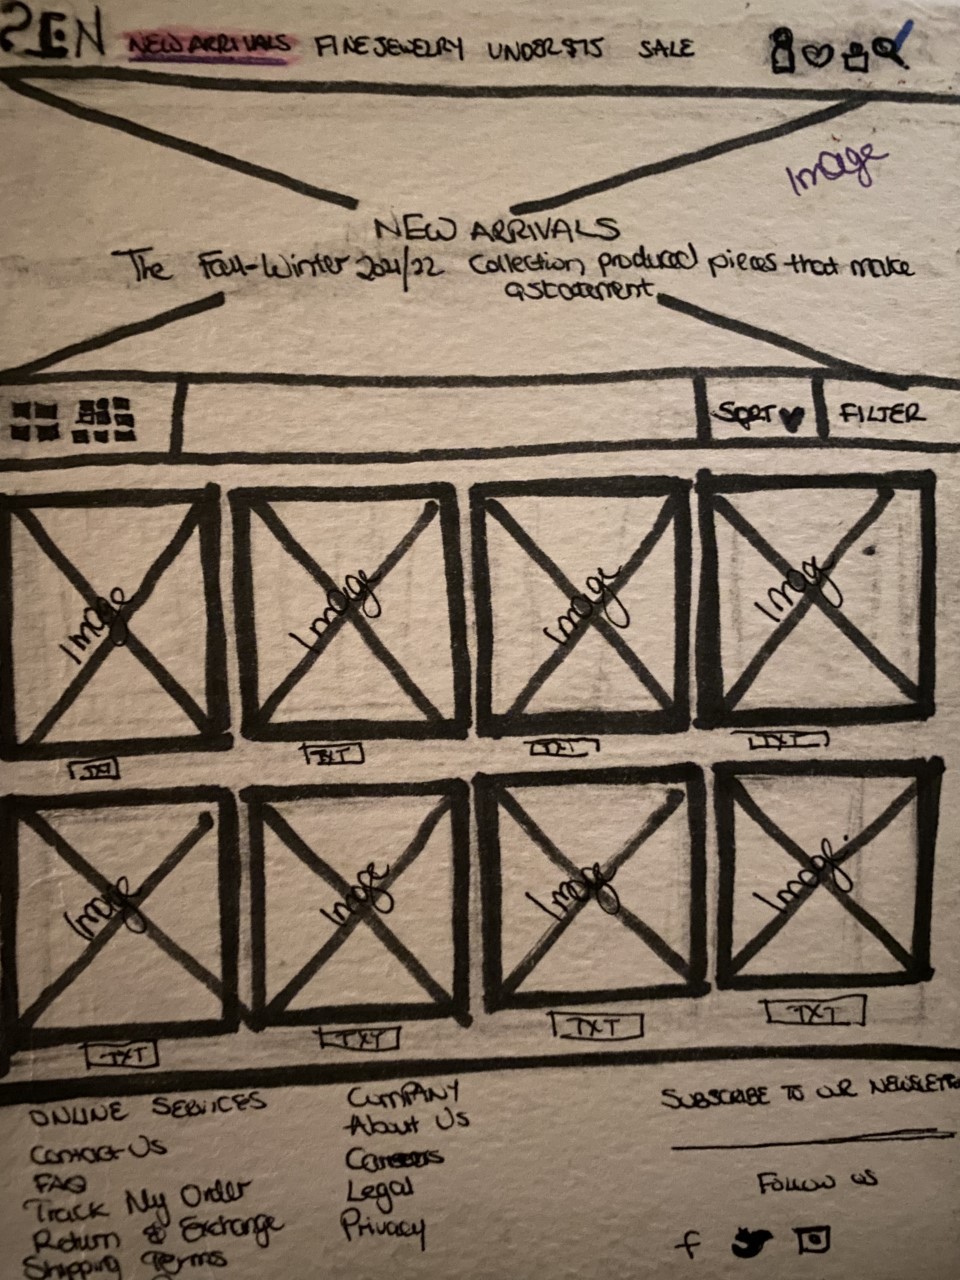 SEN NEW ARRIVALS FINE JEWELRY UNDER $75 SALE
Image
NEW ARRIVALS
The Fall-Winter 2021/22 Collection produced pieces that make
a statement
SORT FILTER
Image Image Image Image
TXT TXT TXT TXT
Image Image Image Image
TXT TXT TXT TXT
ONLINE SERVICES
Contact Us
FAQ
Track My Order
Return & Exchange
Shipping Terms
COMPANY
About Us
Careers
Legal
Privacy
SUBSCRIBE TO OUR NEWSLETTE
FOLLOW US
f